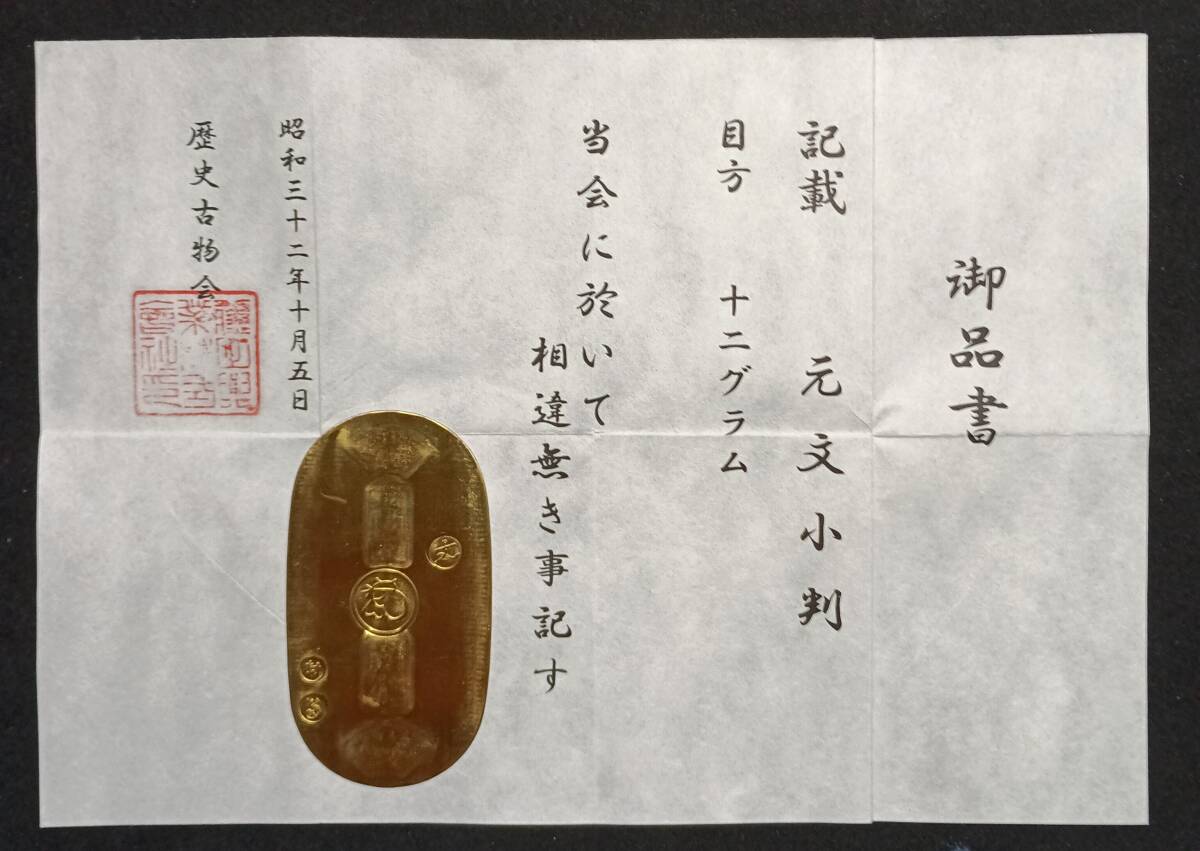 御品書
記載 元文小判
目方 十二グラム
当会に於いて
相違無き事記す
昭和三十二年十月五日
歴史古物会
元